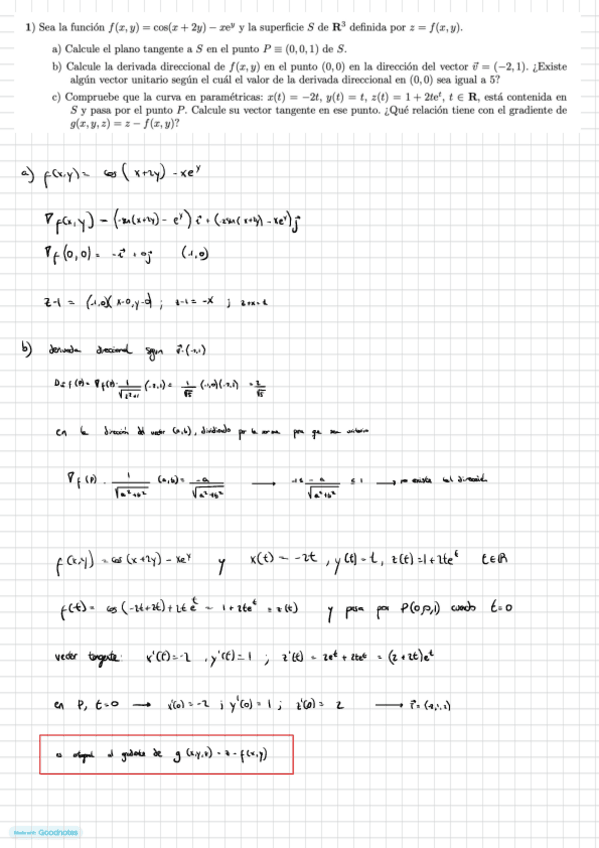 1) Sea la función f(x, y) = cos(x + 2y) − xe^y y la superficie S de R^3 definida por z = f(x, y).
a) Calcule el plano tangente a S en el punto P ≡ (0, 0, 1) de S.
b) Calcule la derivada direccional de f(x, y) en el punto (0, 0) en la dirección del vector v⃗ = (−2, 1). ¿Existe
algún vector unitario según el cuál el valor de la derivada direccional en (0, 0) sea igual a 5?
c) Compruebe que la curva en paramétricas: x(t) = −2t, y(t) = t, z(t) = 1 + 2te^t, t ∈ R, está contenida en
S y pasa por el punto P. Calcule su vector tangente en ese punto. ¿Qué relación tiene con el gradiente de
g(x, y, z) = z − f(x, y)?
a) f(x,y) = cos(x+2y) - xe^y
∇f(0,0) = -i⃗ + 0j (-1,0)
z-1 = (-1,0)(x-0,y-0) ; z-1 = -x ;
b) derivada direccional según
en la dirección del vector (a,b), dividiendo por la norma para que sea unitario
∇f(P) · 1/√(a²+b²) (a,b) = -a/√(a²+b²) → ≤ 1 → no existe tal dirección
f(x,y) = cos(x+2y) - xe^y y x(t) = -2t, y(t) = t, z(t) = 1+2te^t t∈R
f(t) = cos(-2t+2t) + 2te^t = 1+2te^t = z(t) y pasa por P(0,0,1) cuando t=0
vector tangente: x'(t) = -2, y'(t) = 1 ; z'(t) = 2e^t + 2te^t = (2+2t)e^t
en P, t=0 → x'(0) = -2 ; y'(0) = 1 ; z'(0) = 2 →
de g(x,y,z) = z - f(x,y)
Made with Goodnotes